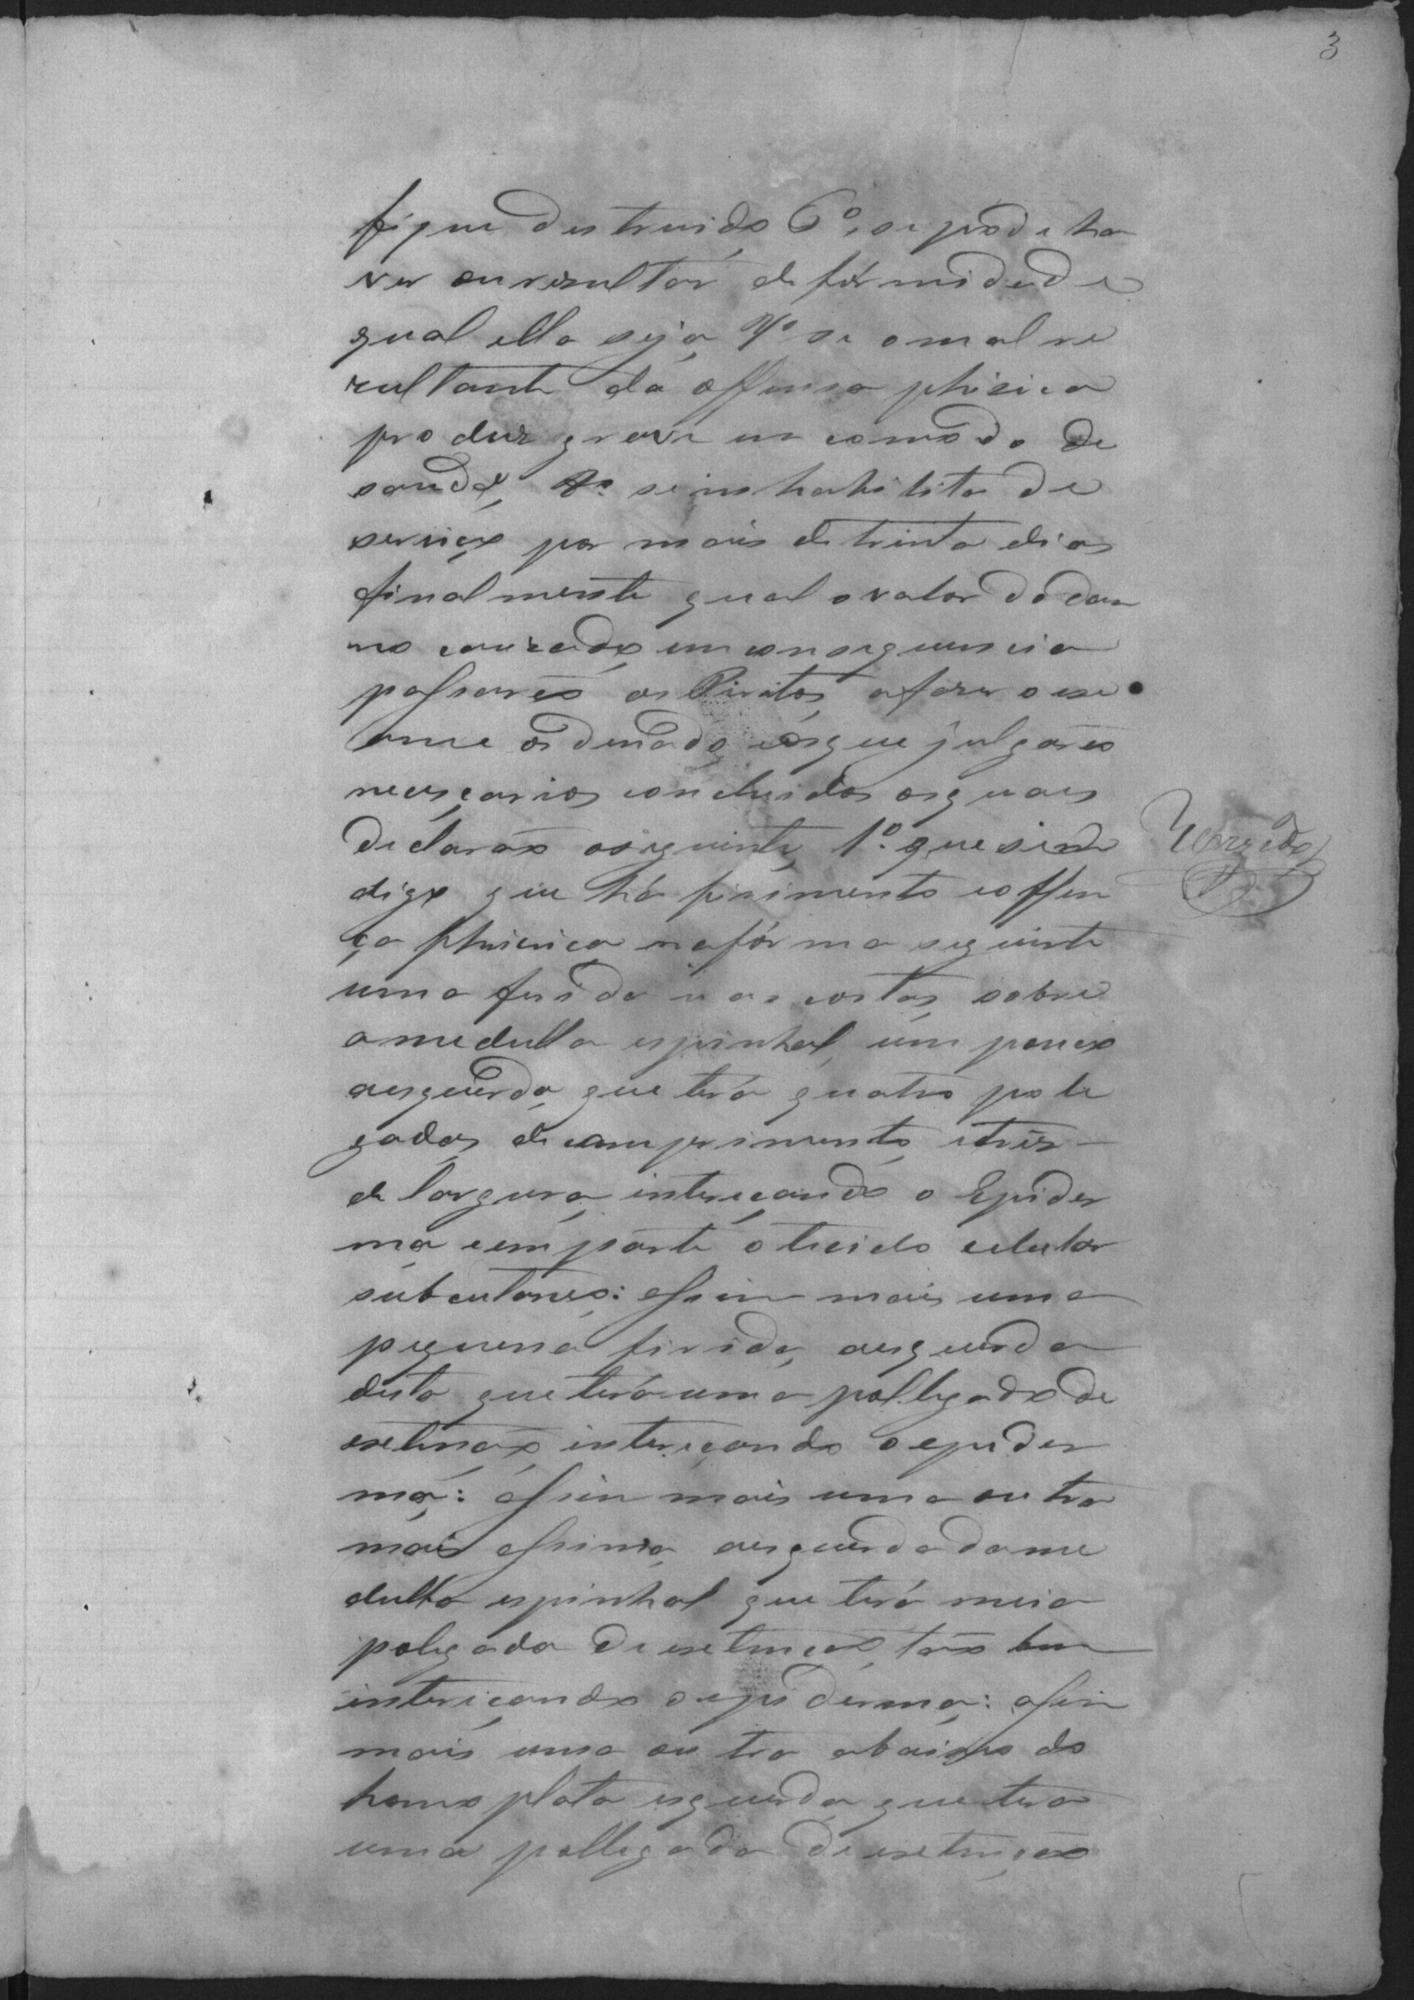 3
fique destruido 6º, se póde ha
ver ou rezultar deformidade e
qual ella seja, 7º se o mal re
zultante da offensa phisica
produz grave incomodo de
saude, 8º se inhabilita de
serviço por mais de trinta dias
finalmente qual o valor do dam
no cauzado, em consequencia
passarão os Piritos, a fazer o exa
ame ordenado, e os que julgarão
neceçarios concluidos os quaes
declarão o siguinte, 1º quesindo
digo que há firimento e offen
ça phisica na fórma seguinte
uma firida nas costas, sobre
a medulla espinhal, um pouco
a esquerda, que terá quatro pole
gadas de comprimento, e três
de largura, intereçando o Epider
ma e em parte o tecido celular
subcutaneo: assim mais uma
piquena firida, a esquerda
desta que terá uma pollegada de
extenção, intereçando o epider
ma: assim mais uma outra
mais assima, a esquerda da me
dulla espinhal que terá meia
polegada de extenção, tão bem
intereçando o epiderma: assim
mais uma outra abaixo do
homoplata esquerda, que terá
uma pollegada de extenção